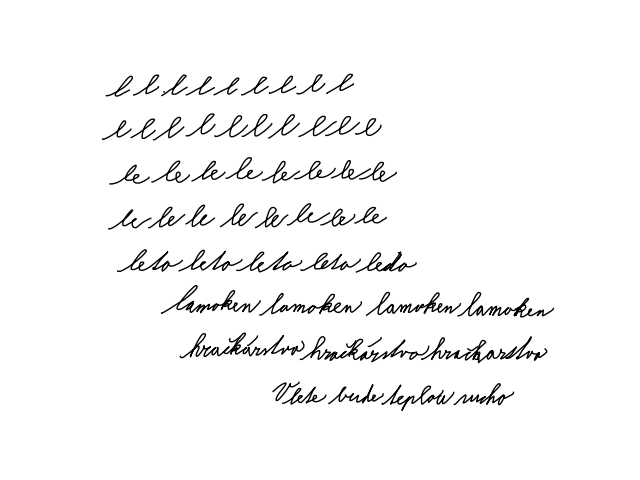 l l l l l l l l l
l l l l l l l l l l
le le le le le le le le
le le le le le le le le
leto leto leto leto ledo
lamoken lamoken lamoken lamoken
hračkárstvo hračkárstvo hračkarstvo
V lete bude